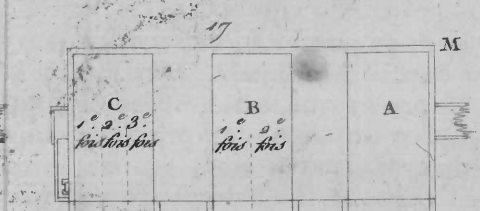 17
M
C
B
A
1.e 2.e 3.e
fois fois fois
1.e 2.e
fois fois